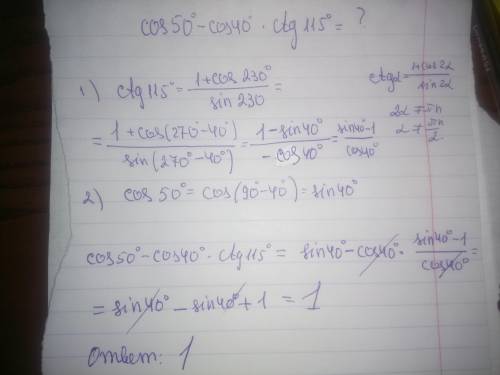 cos50° - cos40° · ctg115° = ?
1) ctg115° = (1+cos230°)/(sin230) =
ctgα = (1+cos2α)/(sin2α)
2α ≠ πn
α ≠ πn/2
= (1+cos(270°-40°))/(sin(270°-40°)) = (1-sin40°)/(-cos40°) = (sin40°-1)/(cos40°)
2) cos50° = cos(90°-40°) = sin40°
cos50° - cos40° · ctg115° = sin40° - cos40° · (sin40°-1)/(cos40°) =
= sin40° - sin40° + 1 = 1
Ответ: 1